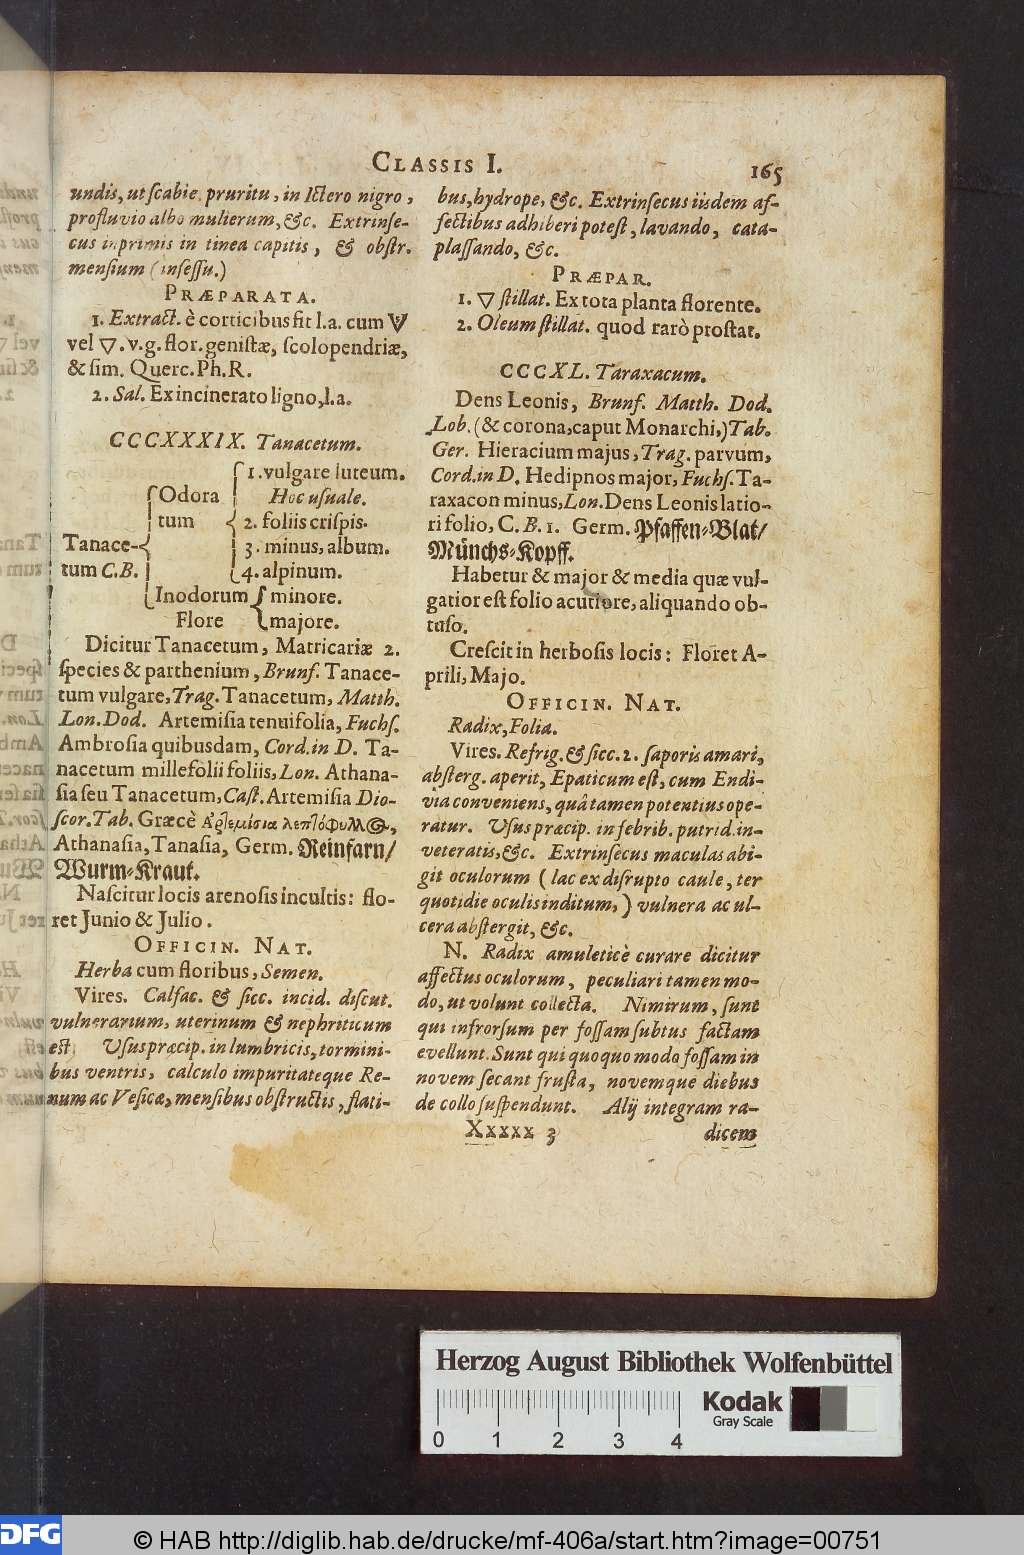 CLASSIS I. 165
undis, ut scabie, pruritu, in Ictero nigro,
profluvio albo mulierum, &c. Extrinse-
cus inprimis in tinea capitis, & obstr.
mensium (insessu.)
PRÆPARATA.
1. Extract. è corticibus fit l.a. cum
vel ▽. v.g. flor. genistæ, scolopendriæ,
& sim. Querc. Ph. R.
2. Sal. Ex incinerato ligno, l.a.
CCCXXXIX. Tanacetum.
1. vulgare luteum.
Odora Hoc usuale.
tum 2. foliis crispis.
Tanace- 3. minus, album.
tum C.B. 4. alpinum.
Inodorum minore.
Flore majore.
Dicitur Tanacetum, Matricariæ 2.
species & parthenium, Brunf. Tanace-
tum vulgare, Trag. Tanacetum, Matth.
Lon. Dod. Artemisia tenuifolia, Fuchs.
Ambrosia quibusdam, Cord. in D. Ta-
nacetum millefolii foliis, Lon. Athana-
sia seu Tanacetum, Cast. Artemisia Dio-
scor. Tab. Græcè Ἀρτεμίσια λεπτόφυλλος,
Athanasia, Tanasia, Germ. Reinfarn/
Wurm-Kraut.
Nascitur locis arenosis incultis: flo-
ret Junio & Julio.
OFFICIN. NAT.
Herba cum floribus, Semen.
Vires. Calfac. & sicc. incid. discut.
vulnerarium, uterinum & nephriticum
est. Usus præcip. in lumbricis, tormini-
bus ventris, calculo impuritateque Re-
num ac Vesicæ, mensibus obstructis, flati-
bus, hydrope, &c. Extrinsecus iisdem af-
fectibus adhiberi potest, lavando, cata-
plassando, &c.
PRÆPAR.
1. ▽ stillat. Ex tota planta florente.
2. Oleum stillat. quod rarò prostat.
CCCXL. Taraxacum.
Dens Leonis, Brunf. Matth. Dod.
Lob. (& corona, caput Monarchi,) Tab.
Ger. Hieracium majus, Trag. parvum,
Cord. in D. Hedipnos major, Fuchs. Ta-
raxacon minus, Lon. Dens Leonis latio-
ri folio, C. B. 1. Germ. Pfaffen-Blat/
Münchs-Kopff.
Habetur & major & media quæ vul-
gatior est folio acutiore, aliquando ob-
tuso.
Crescit in herbosis locis: Floret A-
prili, Majo.
OFFICIN. NAT.
Radix, Folia.
Vires. Refrig. & sicc. 2. saporis amari,
absterg. aperit, Epaticum est, cum Endi-
via conveniens, quâ tamen potentius ope-
ratur. Usus præcip. in febrib. putrid. in-
veteratis, &c. Extrinsecus maculas abi-
git oculorum (lac ex disrupto caule, ter
quotidie oculis inditum,) vulnera ac ul-
cera abstergit, &c.
N. Radix amuleticè curare dicitur
affectus oculorum, peculiari tamen mo-
do, ut volunt collecta. Nimirum, sunt
qui infrorsum per fossam subtus factam
evellunt. Sunt qui quoquo modo fossam in
novem secant frusta, novemque diebus
de collo suspendunt. Alij integram ra-
Xxxxx 3 dicem
Herzog August Bibliothek Wolfenbüttel
Kodak
Gray Scale
0 1 2 3 4
DFG © HAB http://diglib.hab.de/drucke/mf-406a/start.htm?image=00751